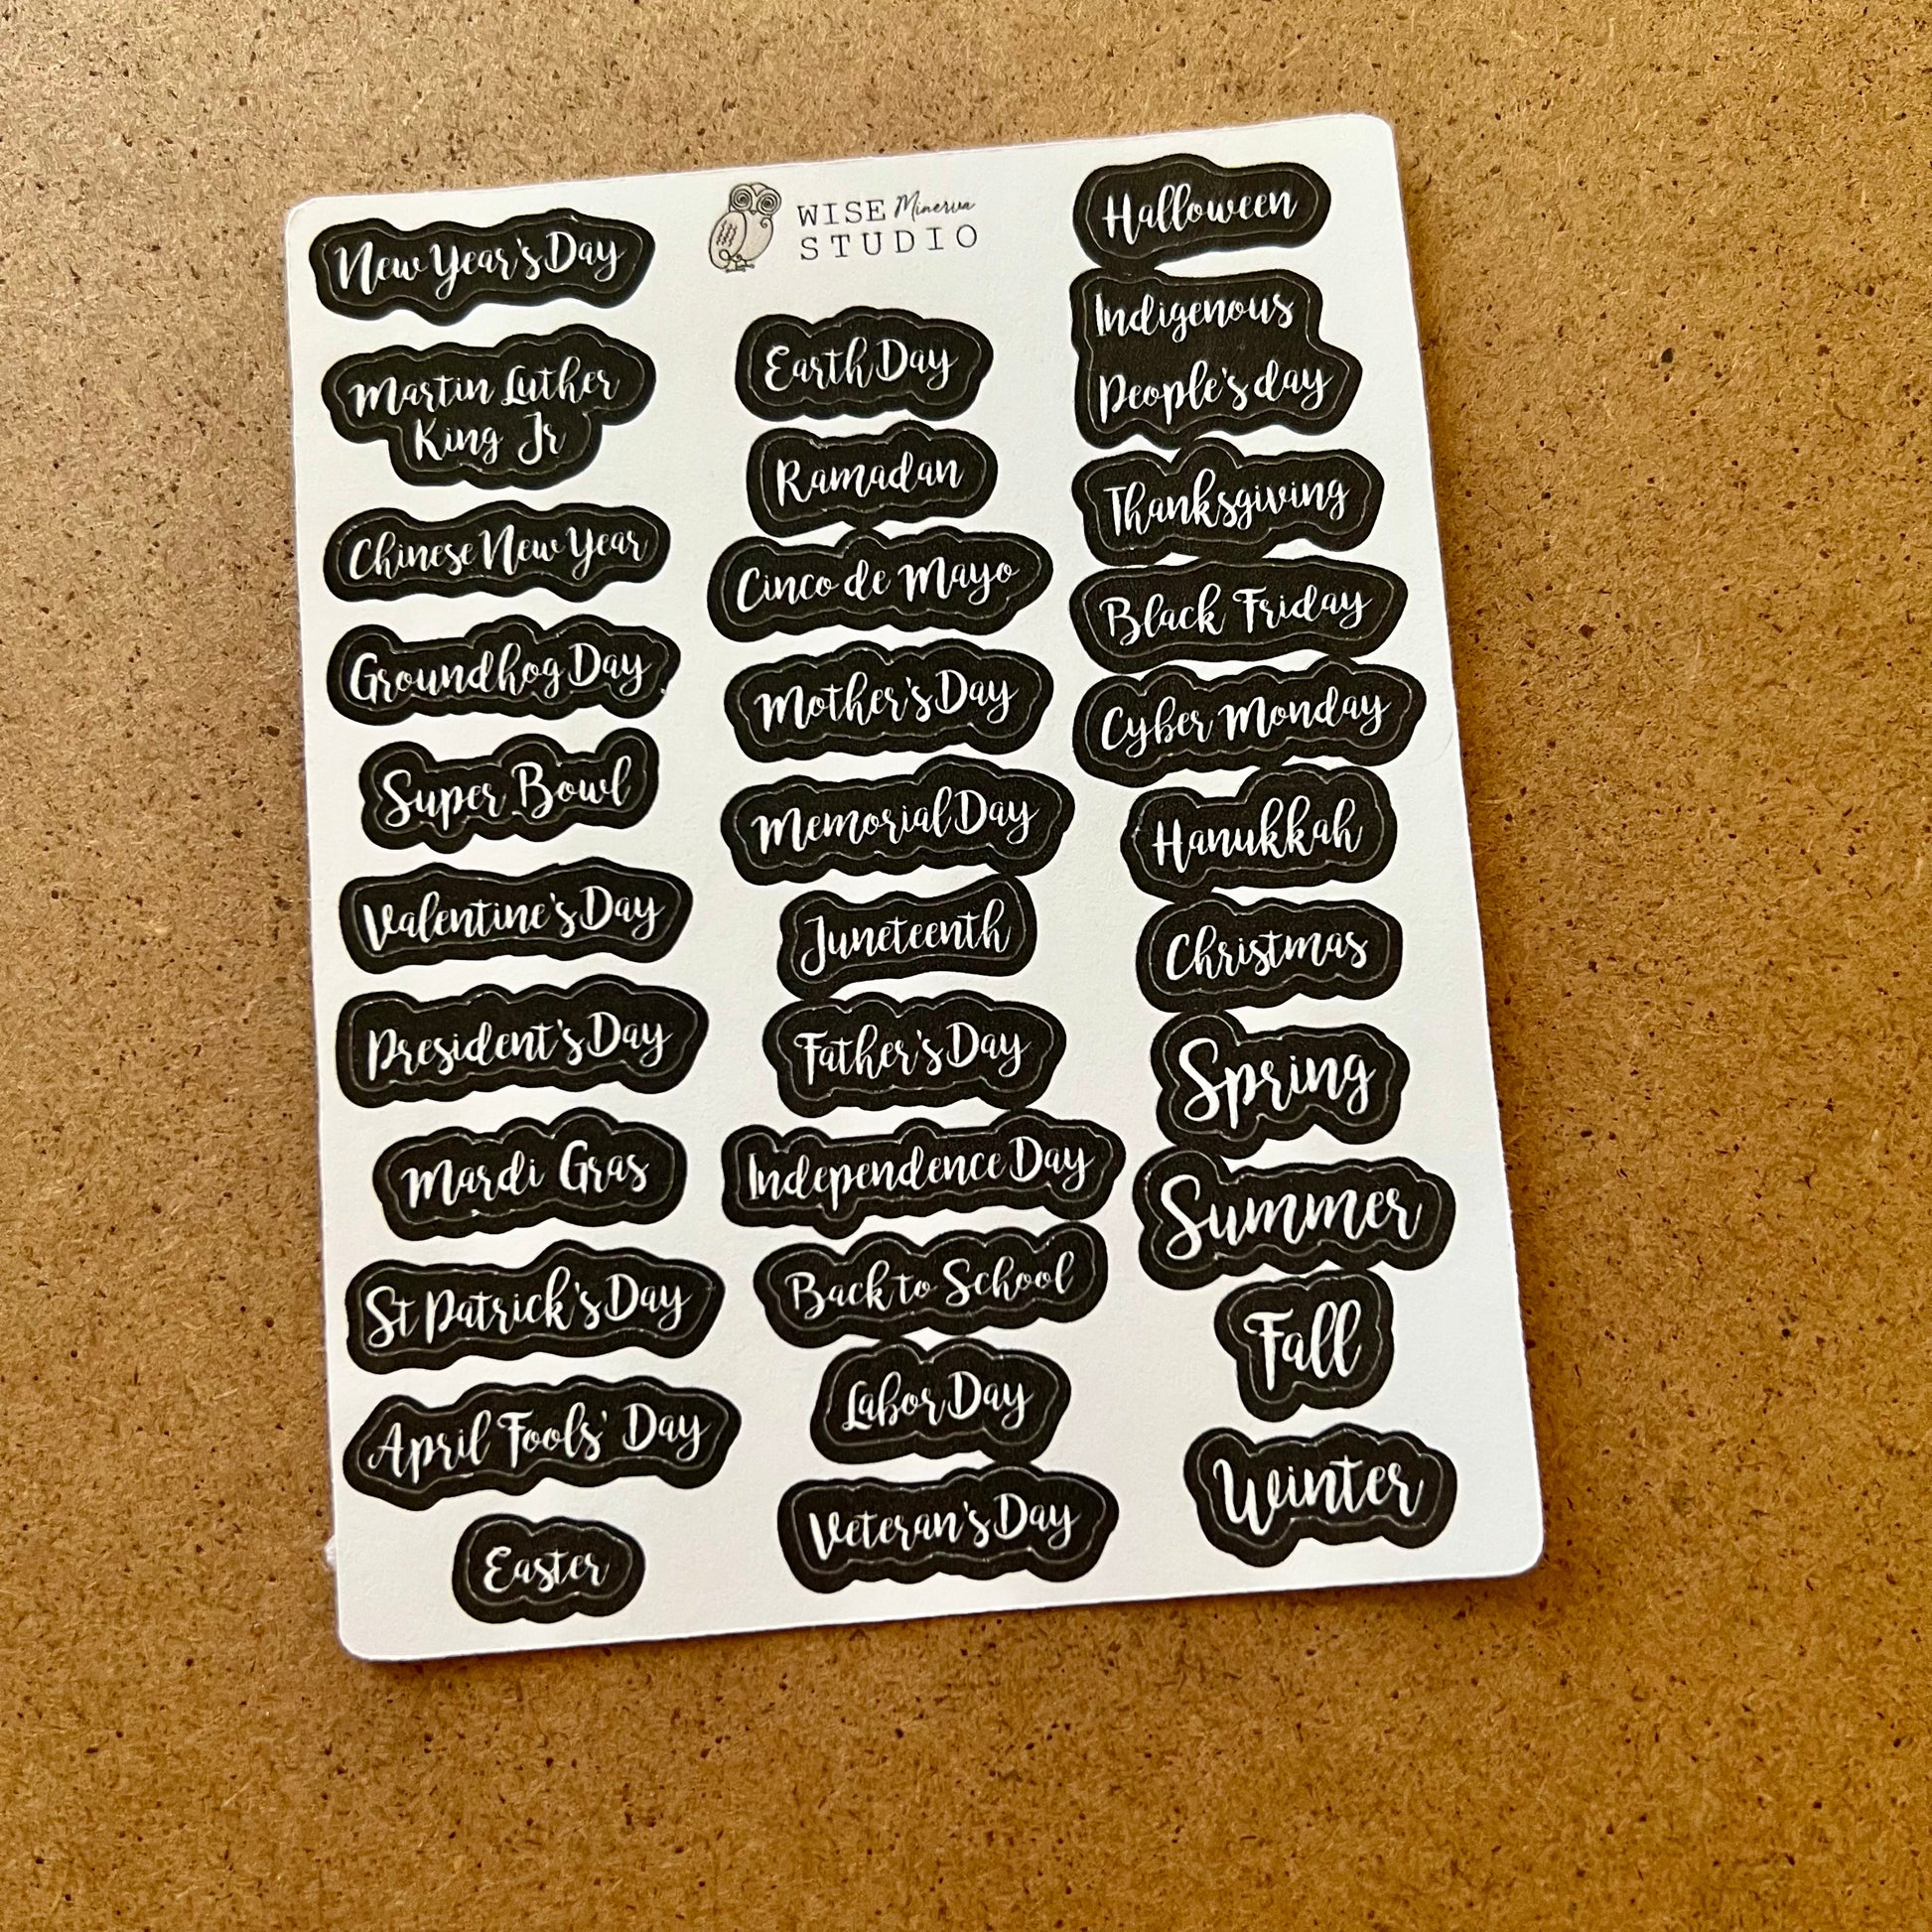 New Year's Day
Martin Luther
King Jr
Chinese New Year
Groundhog Day
Super Bowl
Valentine's Day
President's Day
Mardi Gras
St Patrick's Day
April Fools' Day
Easter
WISE Minerva
STUDIO
Earth Day
Ramadan
Cinco de Mayo
Mother's Day
Memorial Day
Juneteenth
Father's Day
Independence Day
Back to School
Labor Day
Veteran's Day
Halloween
Indigenous
People's day
Thanksgiving
Black Friday
Cyber Monday
Hanukkah
Christmas
Spring
Summer
Fall
Winter